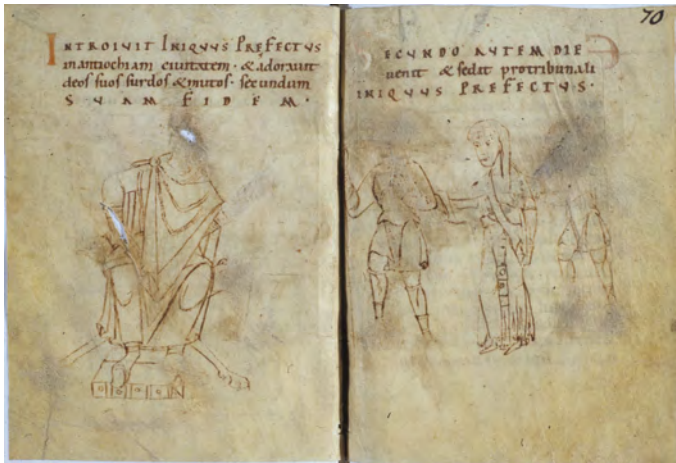 INTROIVIT INIQVVS PREFECTVS
inantiochiam ciuitatem · & adorauit
deos suos surdos & mutos · secundum
SVAM FIDEM ·
70
ECVNDO AVTEM DIE
uenit & sedit protribunali
INIQVVS PREFECTVS ·